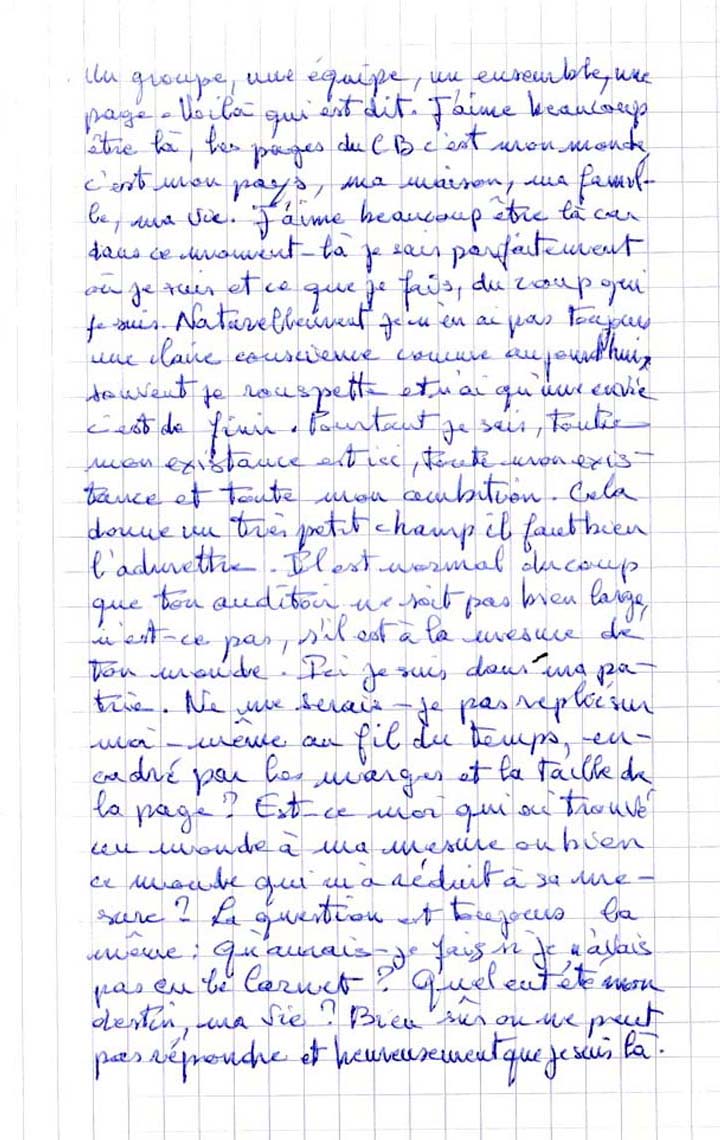 Un groupe, une équipe, un ensemble, une
page. Voilà qui est dit. J'aime beaucoup
être là, les pages du CB c'est mon monde,
c'est mon pays, ma maison, ma famil-
le, ma vie. J'aime beaucoup être là car
dans ce moment-là je sais parfaitement
où je suis et ce que je fais, du coup qui
je suis. Naturellement je n'en ai pas toujours
une claire conscience comme aujourd'hui,
souvent je rouspette et n'ai qu'une envie
c'est de finir. Pourtant je sais, toute
mon existance est ici, toute mon exis-
tance et toute mon ambition. Cela
donne un très petit champ il faut bien
l'admettre. Il est normal du coup
que ton auditoir ne soit pas bien large,
n'est-ce pas, s'il est à la mesure de
ton monde. Ici je suis dans ma pa-
trie. Ne me serais-je pas replié sur
moi-même au fil du temps, en-
cadré par les marges et la taille de
la page ? Est-ce moi qui ai trouvé
un monde à ma mesure ou bien
ce monde qui m'a réduit à sa me-
sure ? La question est toujours la
même : qu'aurais-je fais si je n'avais
pas eu le Carnet ? Quel eut été mon
destin, ma vie ? Bien sûr on ne peut
pas répondre et heureusement que je suis là.